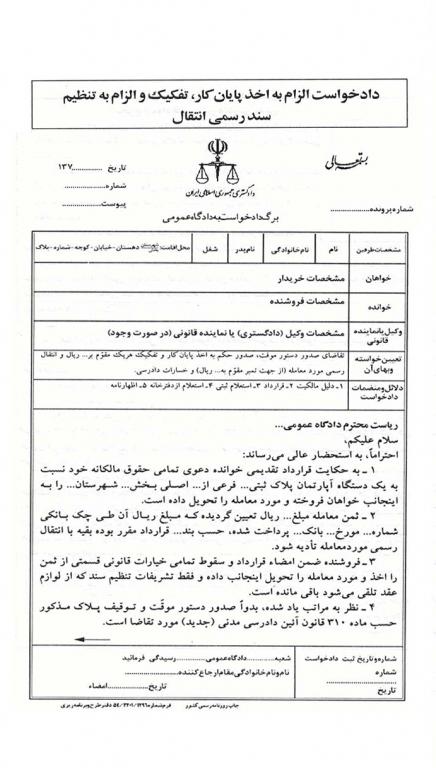 دادخواست الزام به اخذ پایان کار، تفکیک و الزام به تنظیم
سند رسمی انتقال
بسمه تعالی
تاریخ ............. ۱۳۷
شماره....................
پیوست..................
دادگستری جمهوری اسلامی ایران
شماره پرونده....................
برگ دادخواست به دادگاه عمومی
مشخصات طرفین نام نام خانوادگی نام پدر شغل محل اقامت: شهر - دهستان - خیابان - کوچه - شماره - پلاک
خواهان مشخصات خریدار
خوانده مشخصات فروشنده
وکیل یا نماینده قانونی مشخصات وکیل (دادگستری) یا نماینده قانونی (در صورت وجود)
تعیین خواسته وبهای آن تقاضای صدور دستور موقت، صدور حکم به اخذ پایان کار و تفکیک هریک مقوّم بر... ریال و انتقال
رسمی مورد معامله (از جهت تمبر مقوّم به... ریال) و خسارات دادرسی.
دلائل ومنضمات دادخواست ۱ـ دلیل مالکیت ۲ـ قرارداد ۳ـ استعلام ثبتی ۴ـ استعلام از دفترخانه ۵ـ اظهارنامه
ریاست محترم دادگاه عمومی...
سلام علیکم،
احتراماً، به استحضار عالی می‌رساند:
۱ ـ به حکایت قرارداد تقدیمی خوانده دعوی تمامی حقوق مالکانه خود نسبت
به یک دستگاه آپارتمان پلاک ثبتی... فرعی از... اصلی بخش... شهرستان... را به
اینجانب خواهان فروخته و مورد معامله را تحویل داده است.
۲ ـ ثمن معامله مبلغ... ریال تعیین گردیده کـه مـبلغ ریـال آن طـی چک بـانکی
شماره... مورخ... بانک... پرداخت شده، حسب بند... قرارداد مقرر بوده بقیه با انتقال
رسمی موردمعامله تأدیه شود.
۳ ـ فروشنده ضمن امضاء قرارداد و سقوط تمامی خیارات قانونی قسمتی از ثمن
را اخذ و مورد معامله را تحویل اینجانب داده و فقط تشریفات تنظیم سند که از لوازم
عقد تلقی می‌شود باقی مانده است.
۴ ـ نظر به مراتب یاد شده، بدواً صدور دستور موقّت و توقیف پلاک مذکور
حسب ماده ۳۱۰ قانون آئین دادرسی مدنی (جدید) مورد تقاضا است.
شماره و تاریخ ثبت دادخواست
شماره
تاریخ
شعبه............دادگاه عمومی............رسیدگی فرمائید
نام و نام خانوادگی مقام ارجاع کننده...............
تاریخ................. امضاء
چاپ روزنامه رسمی کشور فرم شماره ۵۴/۲۲۰۱/۱۲۹۶ دفتر طرح و برنامه ریزی